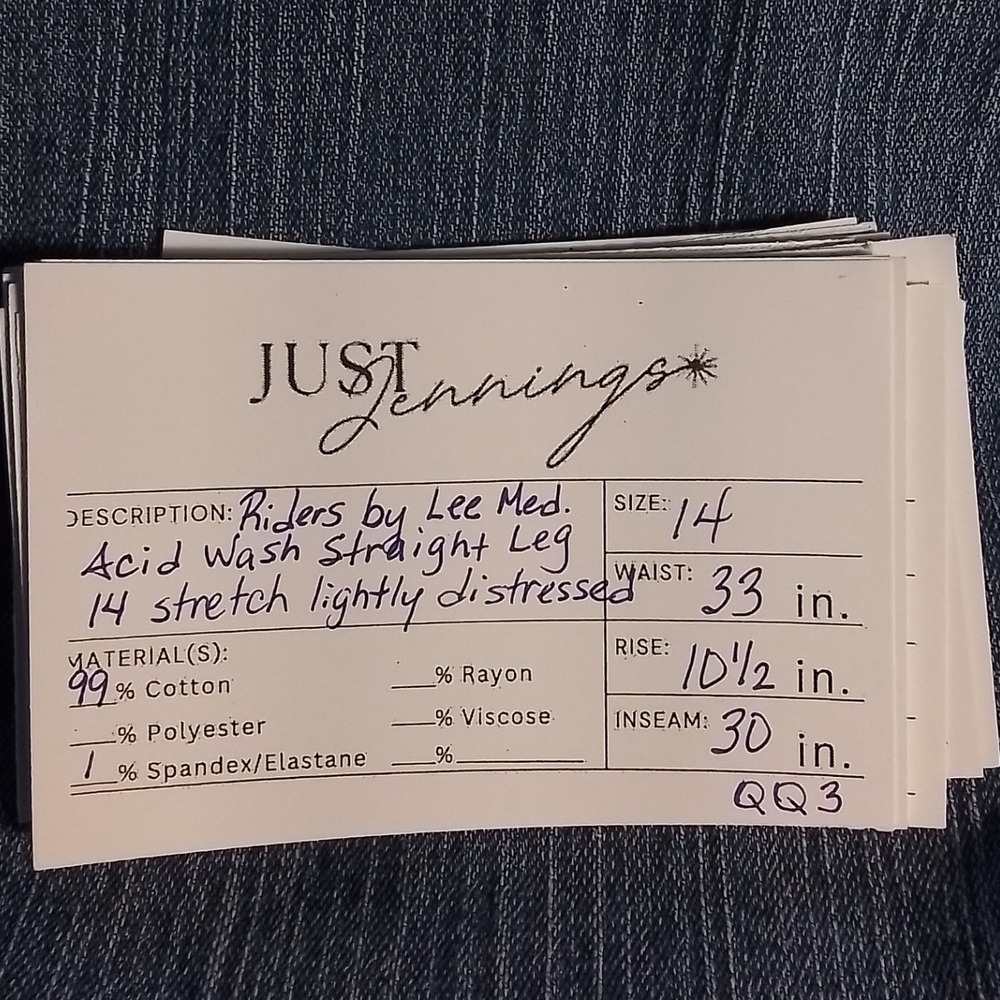 JUST
Jennings*
DESCRIPTION: Riders by Lee Med.
Acid Wash Straight Leg
14 stretch lightly distressed
SIZE: 14
WAIST: 33 in.
RISE: 10 1/2 in.
INSEAM: 30 in.
MATERIAL(S):
99 % Cotton
___% Polyester
1 % Spandex/Elastane
___% Rayon
___% Viscose
___% ___________
QQ3